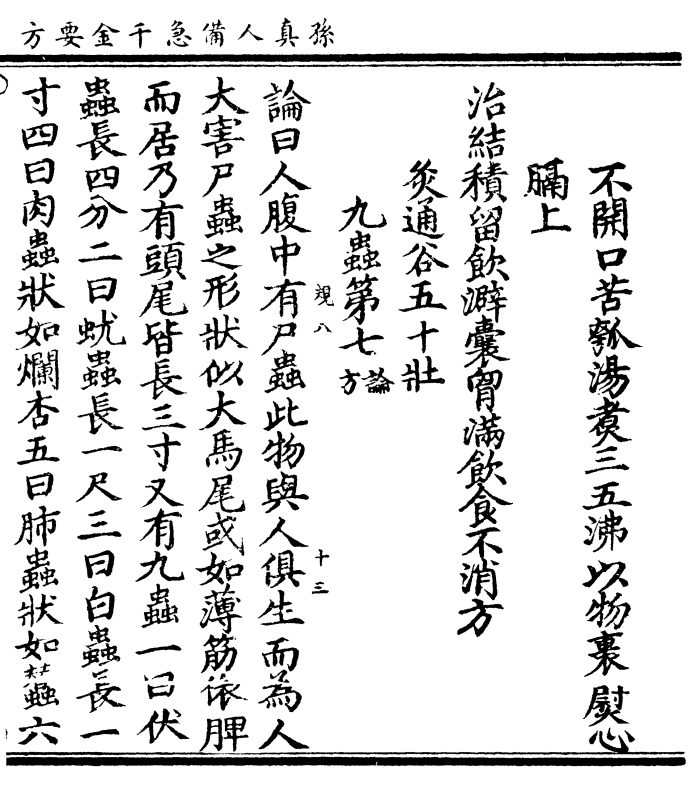 孫真人備急千金要方
不開口苦瓠湯煑三五沸以物裹熨心
膈上
治結積留飲澼囊胷滿飲食不消方
灸通谷五十壯
九蟲第七 論方
規八
十三
論曰人腹中有尸蟲此物與人俱生而為人
大害尸蟲之形狀似大馬尾或如薄筋依脾
而居乃有頭尾皆長三寸又有九蟲一曰伏
蟲長四分二曰蚘蟲長一尺三曰白蟲長一
寸四曰肉蟲狀如爛杏五曰肺蟲狀如蠶六